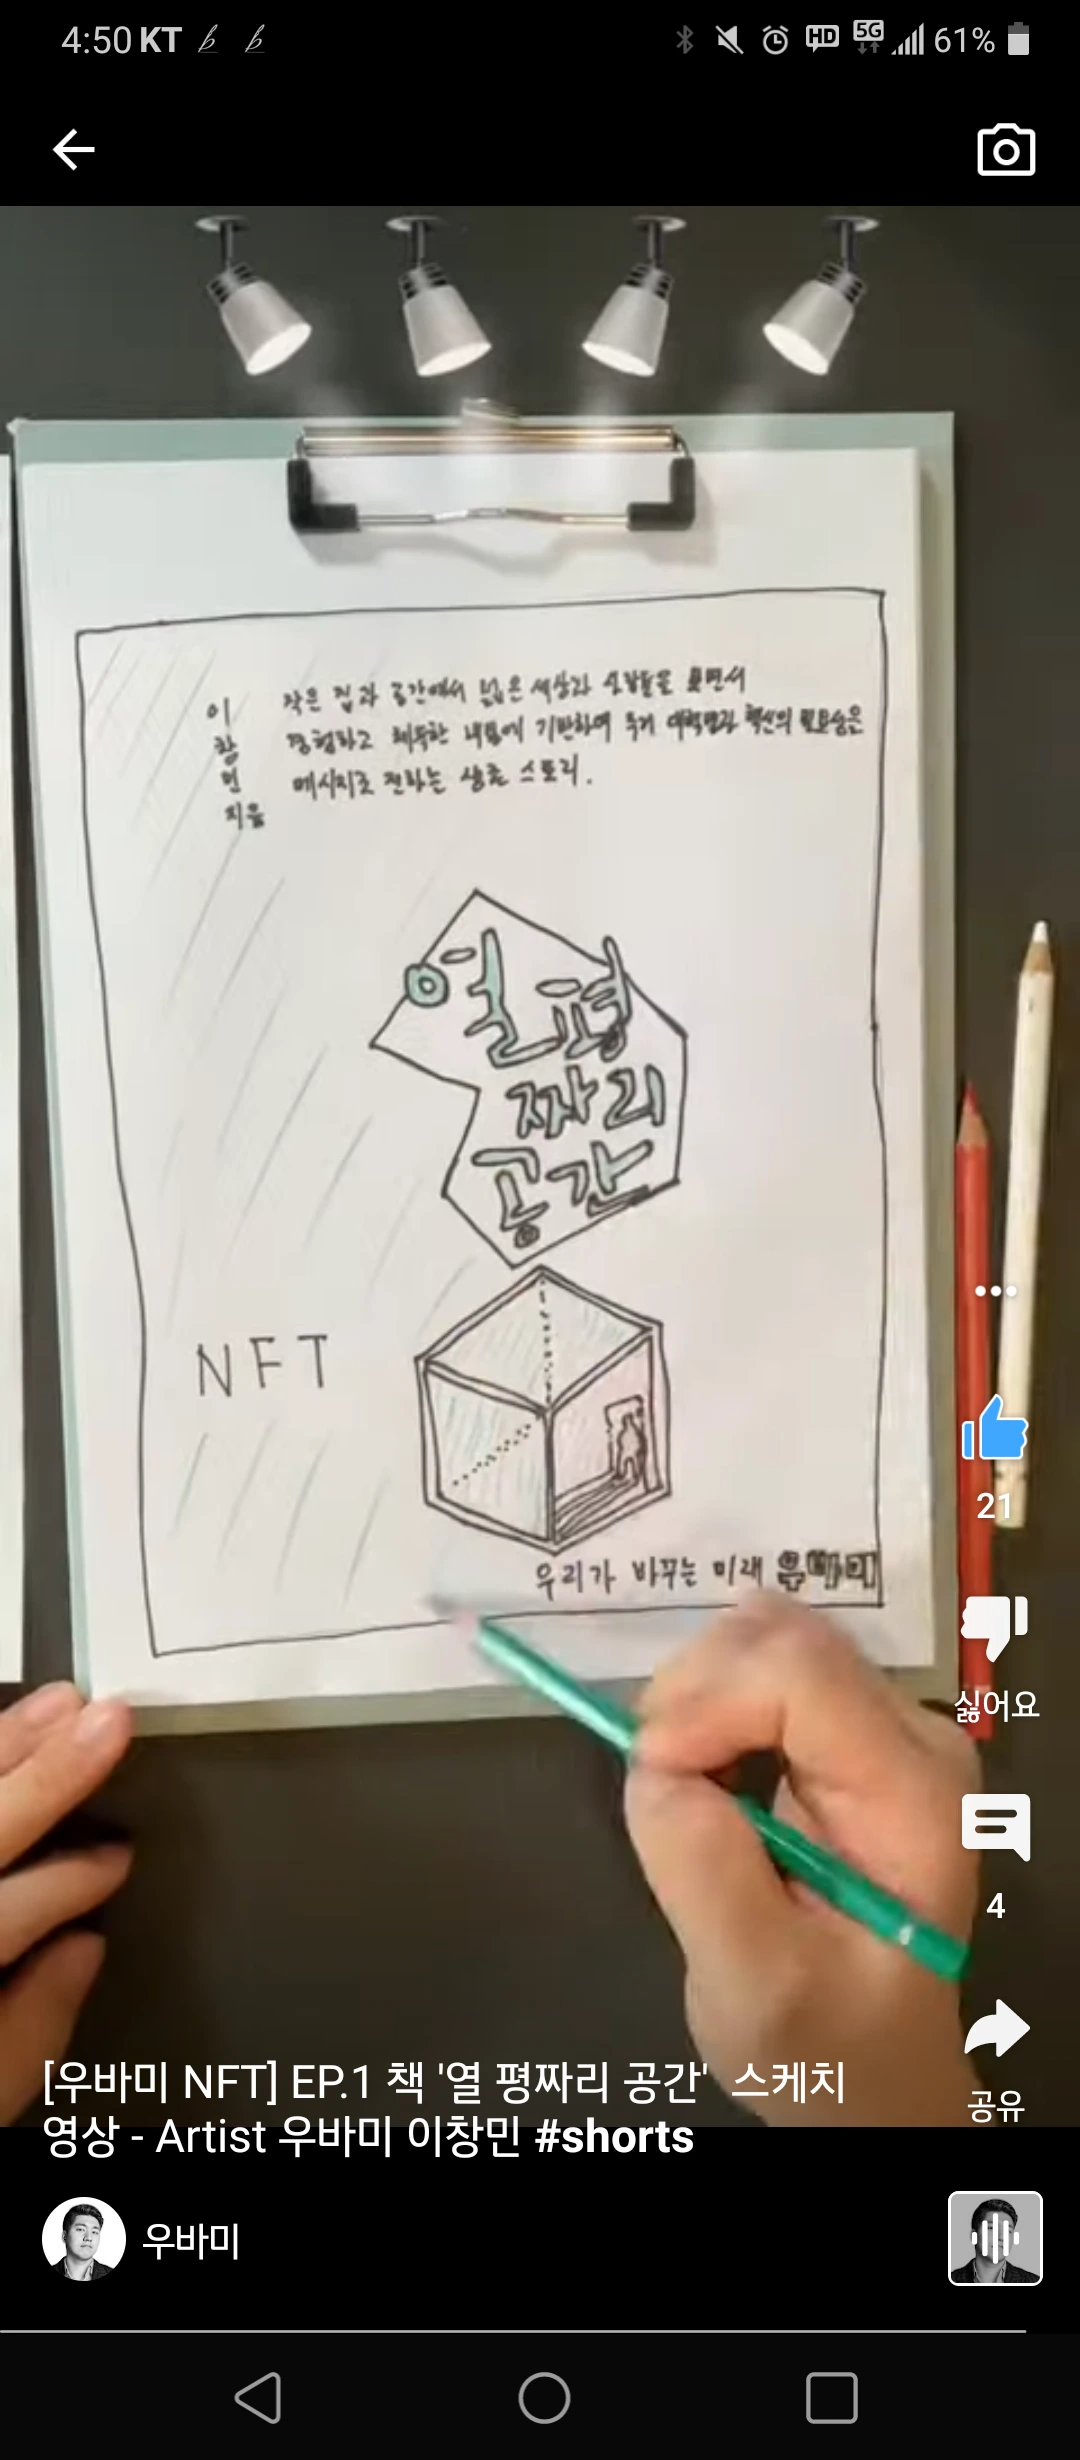 4:50 KT
HD 5G 61%
이창민 지음
작은 집과 공간에서 넓은 세상과 사람들을 보면서
경험하고 체득한 내용에 기반하여 주거 대혁명과 혁신의 필요성을
메시지로 전하는 생존 스토리.
열 평
짜리
공간
NFT
우리가 바꾸는 미래 우바미
21
싫어요
4
공유
[우바미 NFT] EP.1 책 '열 평짜리 공간' 스케치
영상 - Artist 우바미 이창민 #shorts
우바미